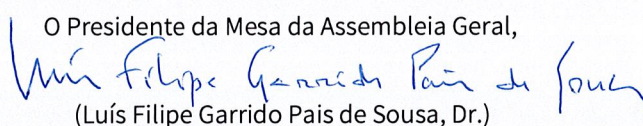 O Presidente da Mesa da Assembleia Geral,
Luís Filipe Garrido Pais de Sousa
(Luís Filipe Garrido Pais de Sousa, Dr.)